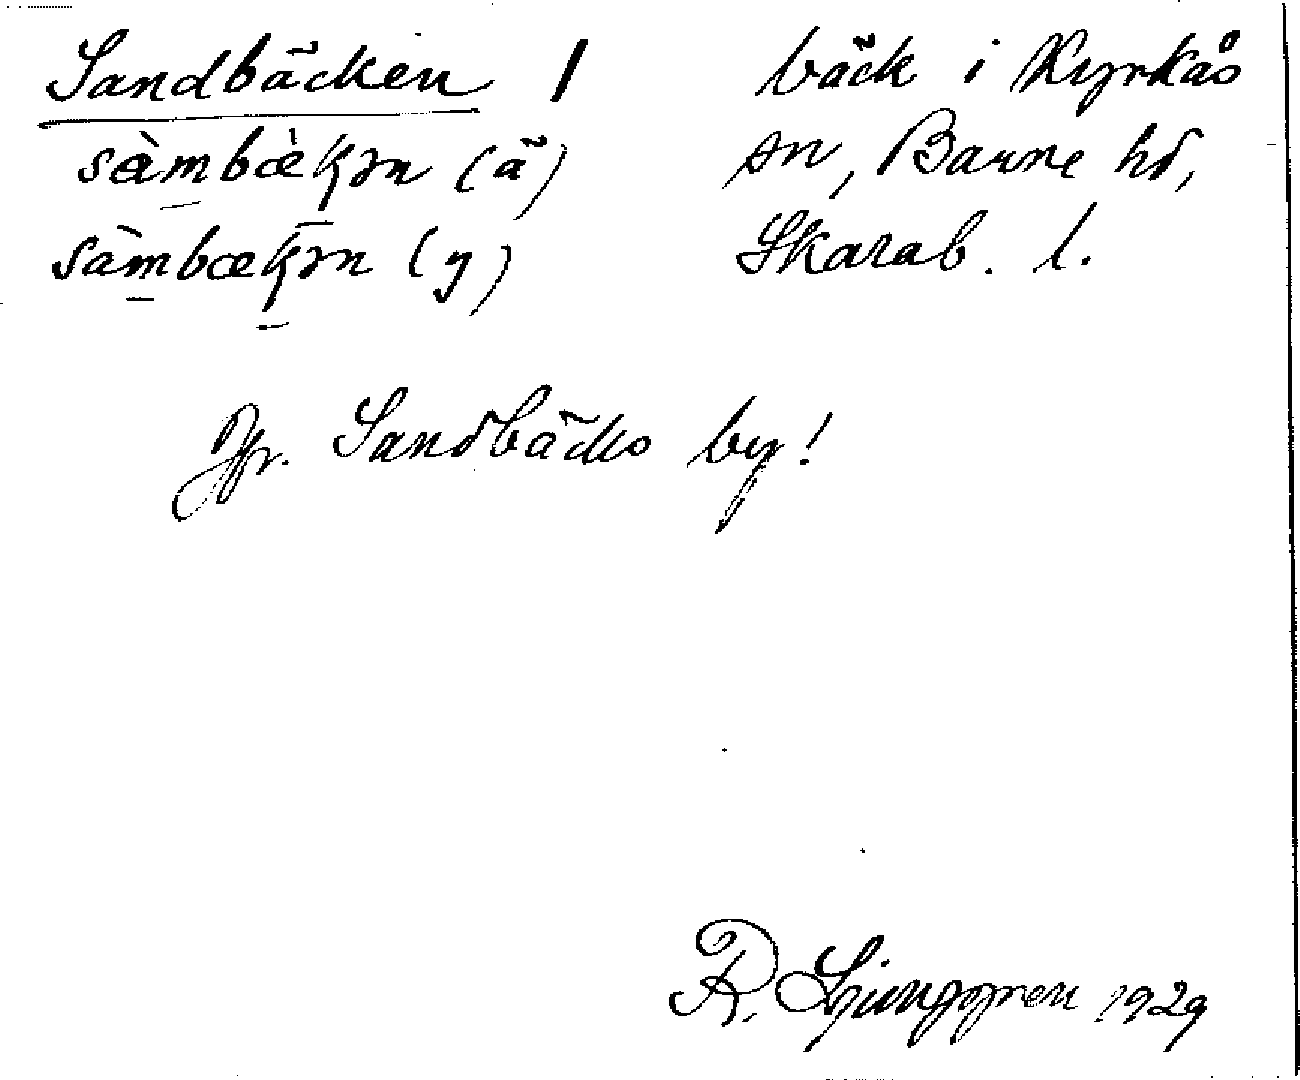 Sandbäcken / bäck i Kyrkås
sàmbæ̀kən (ä) sn, Barne hd,
sàmbækən (y) Skarab. l.
Jfr. Sandbäcks by!
R. Ljunggren 1929